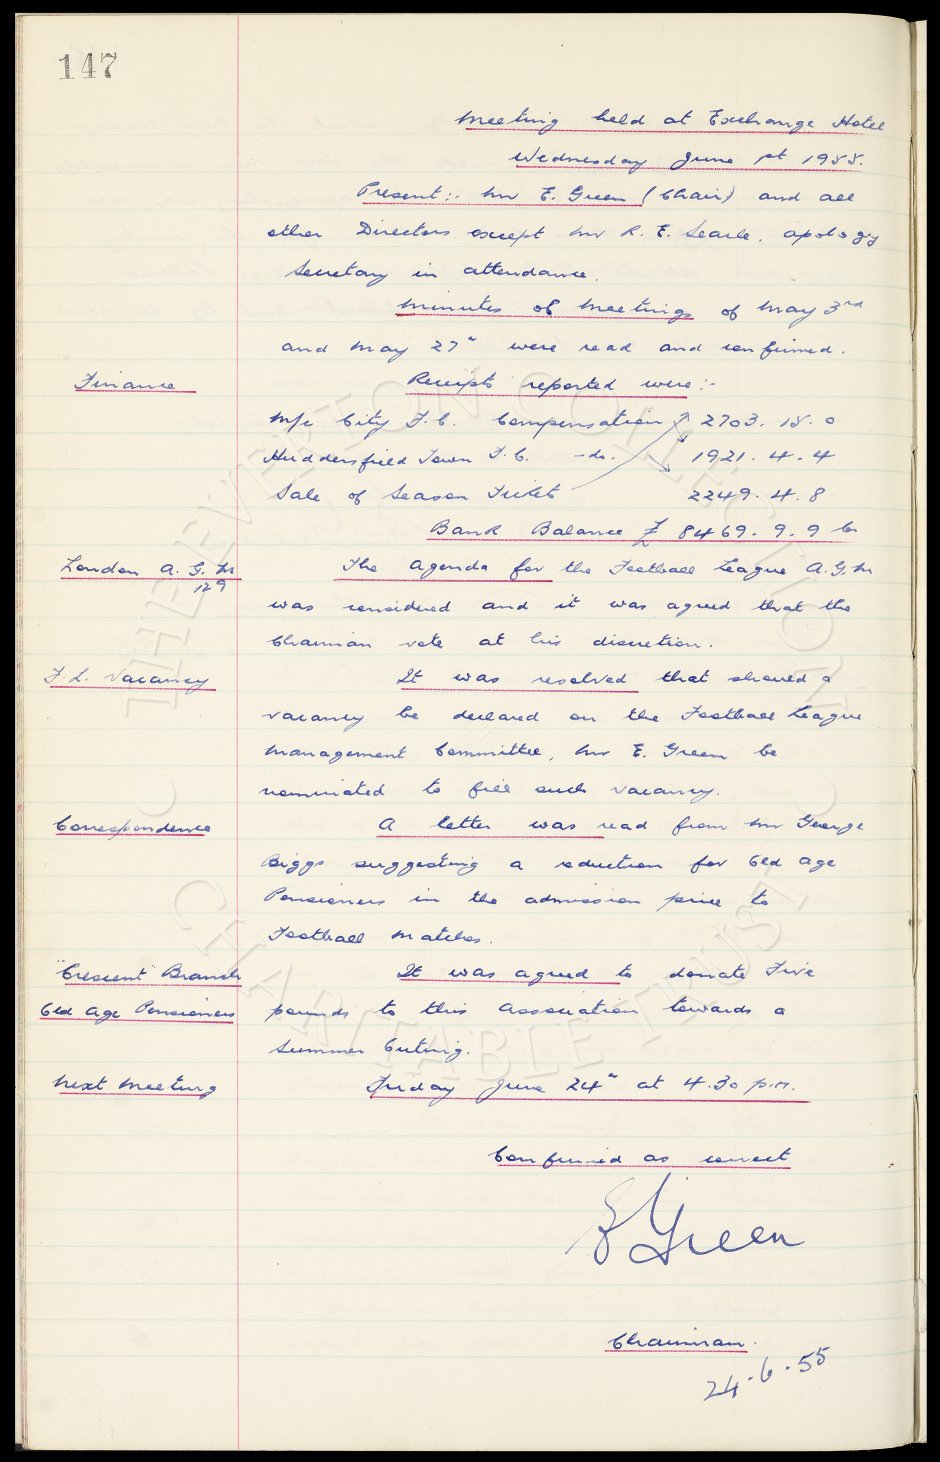 147
Meeting held at Exchange Hotel
Wednesday June 1st 1955.
Present:- Mr E. Green (Chair) and all
other Directors except Mr R. E. Searle, apology
Secretary in attendance.
Minutes of Meetings of May 3rd
and May 27" were read and confirmed.
Finance Receipts reported were:-
M/c City F.C. Compensation 2703. 15. 0
Huddersfield Town F.C. -do. 1921. 4. 4
Sale of Season Tickets 2249. 4. 8
Bank Balance £ 8469. 9. 9 Cr
London A. G. M The Agenda for the Football League A.G.M
129
was considered and it was agreed that the
Chairman vote at his discretion.
F. L. Vacancy It was resolved that should a
vacancy be declared on the Football League
Management Committee, Mr E. Green be
nominated to fill such vacancy.
Correspondence A letter was read from Mr George
Biggs suggesting a reduction for Old Age
Pensioners in the admission price to
Football Matches.
"Crescent" Branch It was agreed to donate Five
Old Age Pensioners pounds to this Association towards a
Summer Outing.
Next Meeting Friday June 24" at 4.30 p.m.
Confirmed as correct
E Green
Chairman.
24.6.55
THE EVERTON COLLECTION
CHARITABLE TRUST